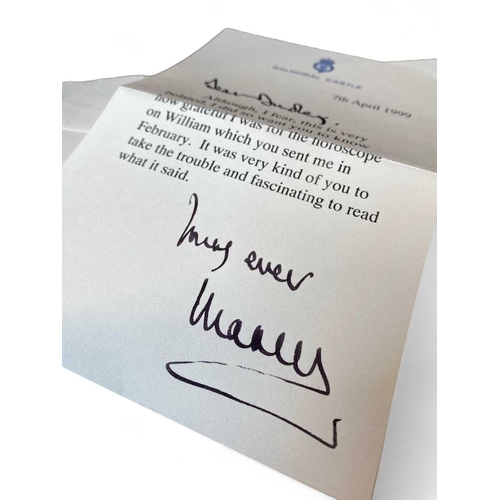 BALMORAL CASTLE
7th April 1999
Dear Dudley,
Although, I fear, this is very
belated, I did so want you to know
how grateful I was for the horoscope
on William which you sent me in
February. It was very kind of you to
take the trouble and fascinating to read
what it said.
Yours ever
Charles